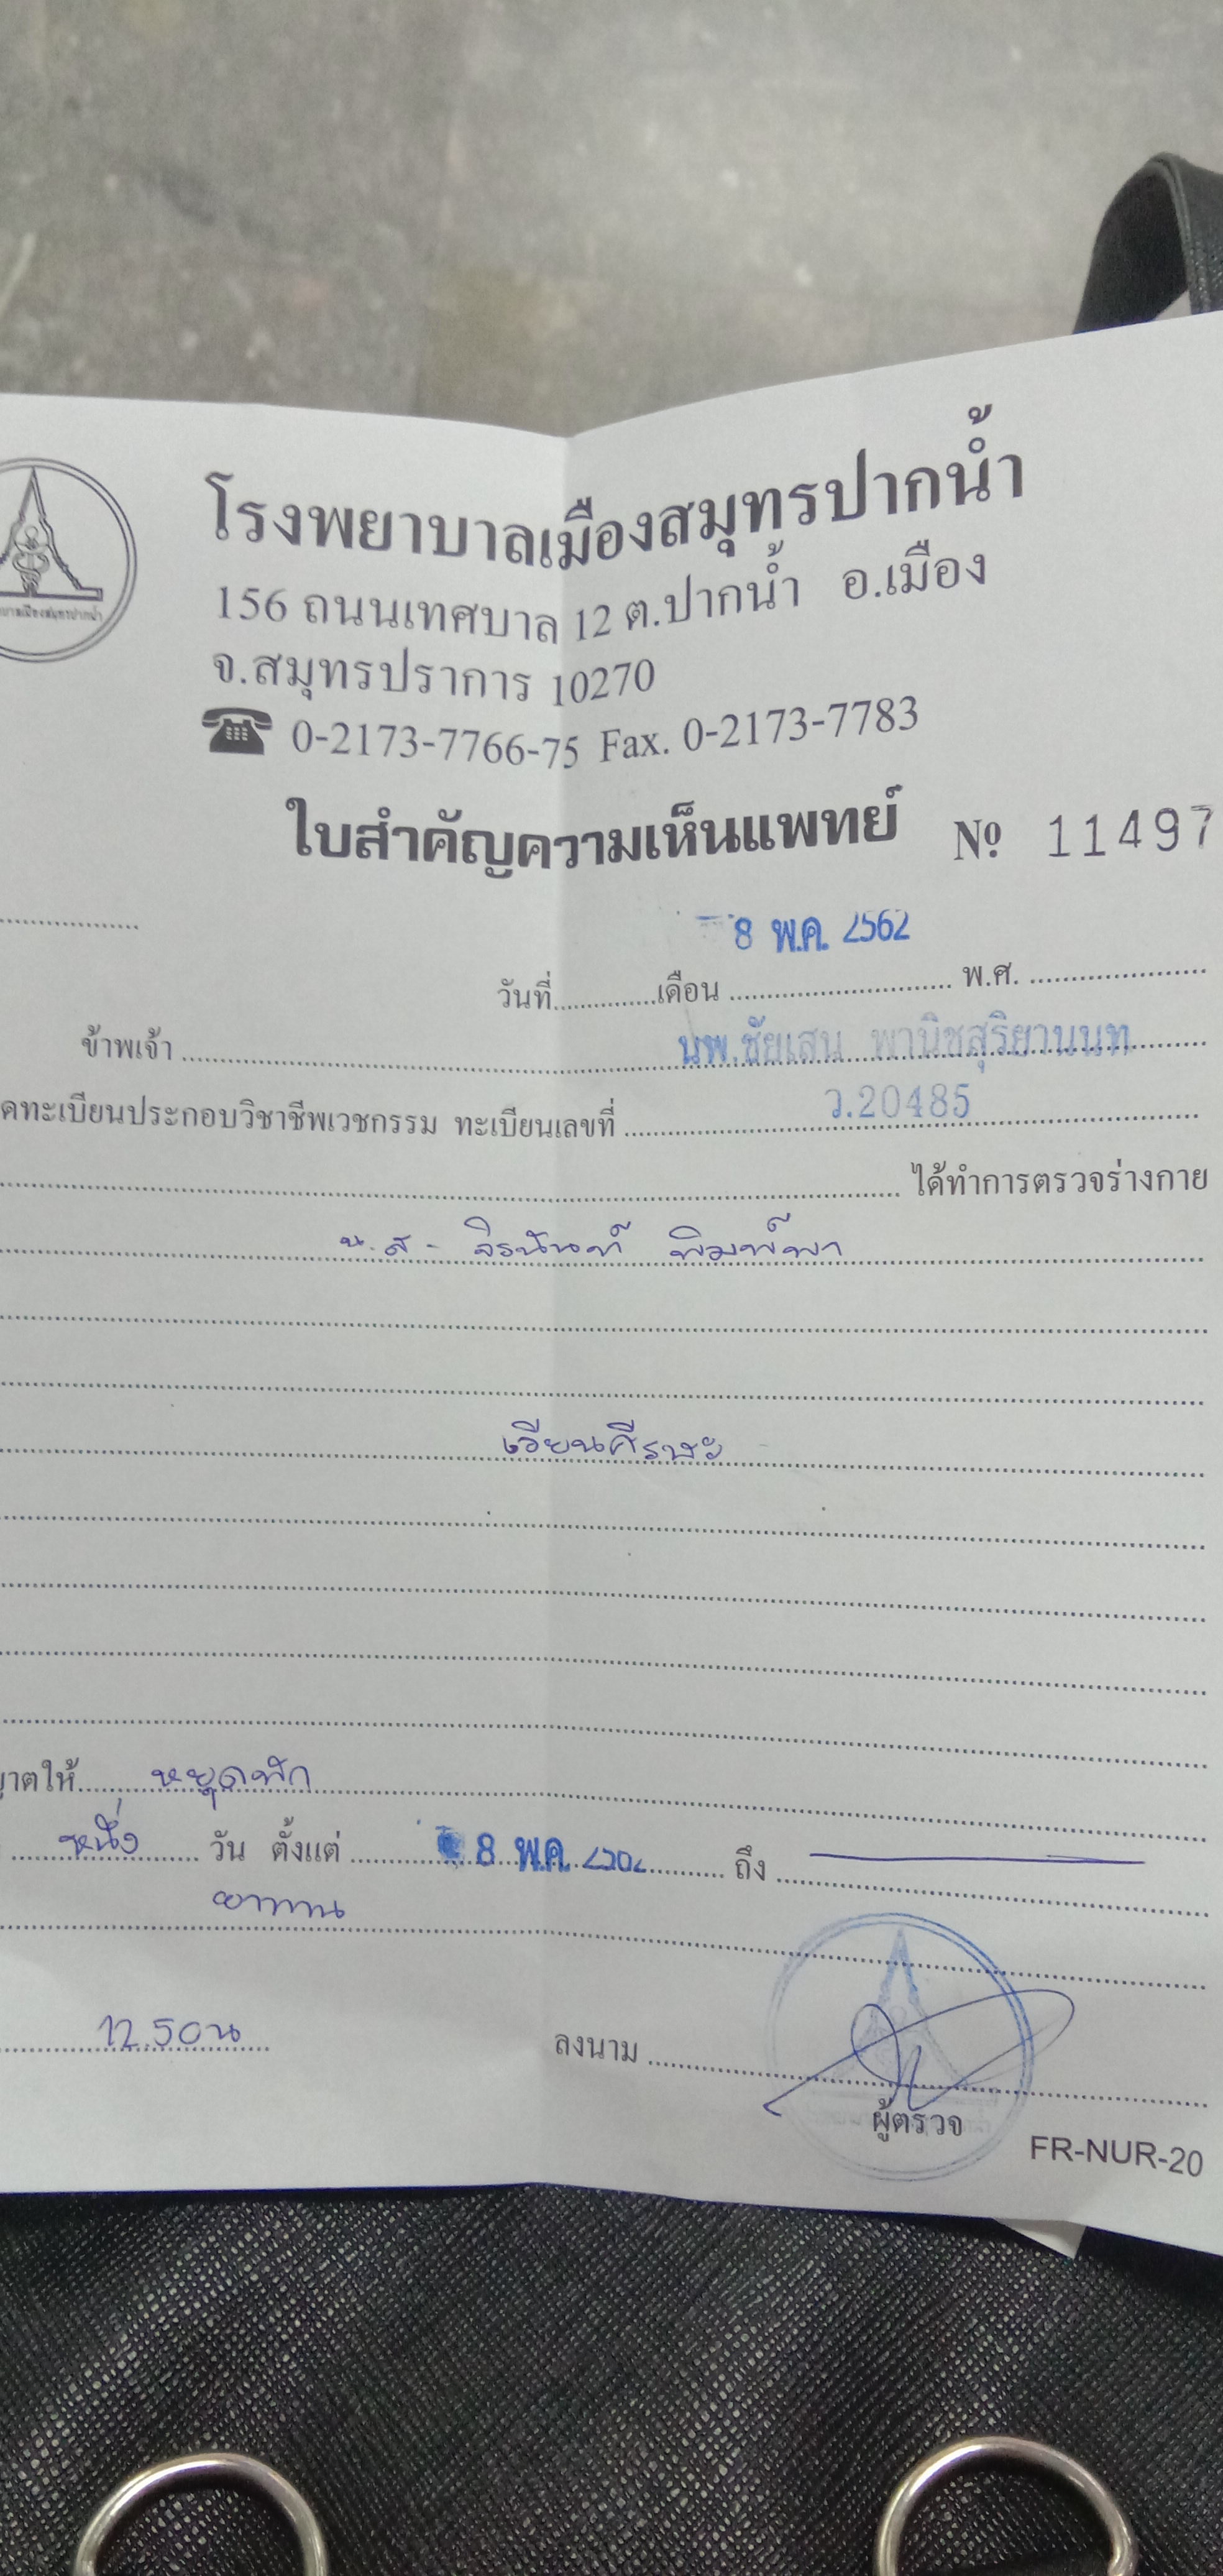 โรงพยาบาลเมืองสมุทรปากน้ำ
156 ถนนเทศบาล 12 ต.ปากน้ำ อ.เมือง
จ.สมุทรปราการ 10270
☎ 0-2173-7766-75 Fax. 0-2173-7783
ใบสำคัญความเห็นแพทย์ № 11497
8 พ.ค. 2562
วันที่..............เดือน .............................. พ.ศ. ........................
ข้าพเจ้า นพ.ชัยเสน พานิชสุริยานนท
ดทะเบียนประกอบวิชาชีพเวชกรรม ทะเบียนเลขที่ ว.20485
ได้ทำการตรวจร่างกาย
น.ส. จิรนันท์ พิมพ์พา
เวียนศีรษะ
ญาตให้ หยุดพัก
หนึ่ง วัน ตั้งแต่ 8 พ.ค. ถึง
ยาทาน
12.50น ลงนาม
ผู้ตรวจ
FR-NUR-20